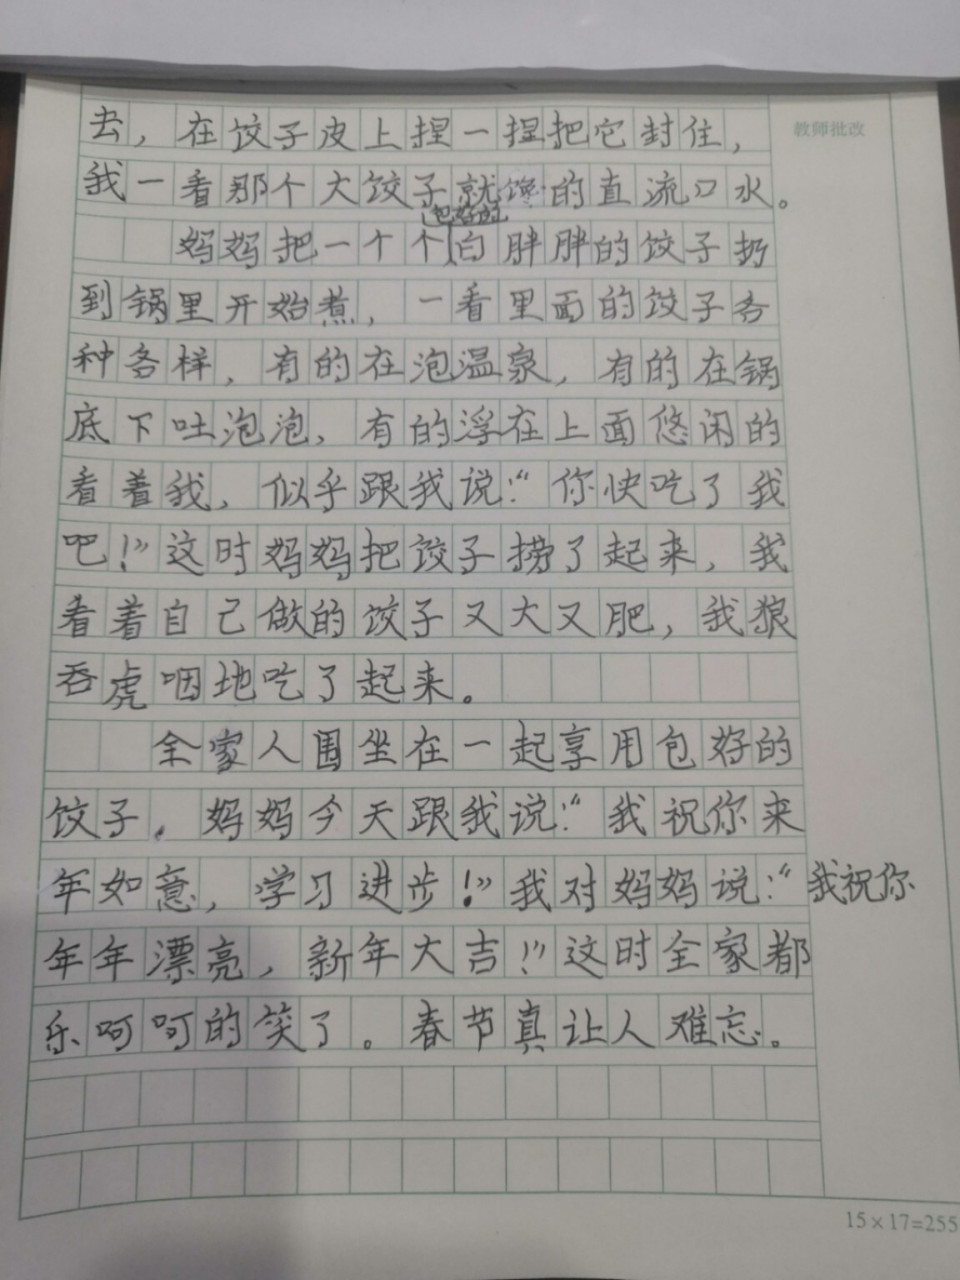 教师批改
去，在饺子皮上捏一捏把它封住，
我一看那个大饺子就馋的直流口水。
包好的
妈妈把一个个白胖胖的饺子扔
到锅里开始煮，一看里面的饺子各
种各样，有的在泡温泉，有的在锅
底下吐泡泡，有的浮在上面悠闲的
看着我，似乎跟我说：“你快吃了我
吧！”这时妈妈把饺子捞了起来，我
看着自己做的饺子又大又肥，我狼
吞虎咽地吃了起来。
全家人围坐在一起享用包好的
饺子。妈妈今天跟我说：“我祝你来
年如意，学习进步！”我对妈妈说：“我祝你
年年漂亮，新年大吉！”这时全家都
乐呵呵的笑了。春节真让人难忘。
15×17=255